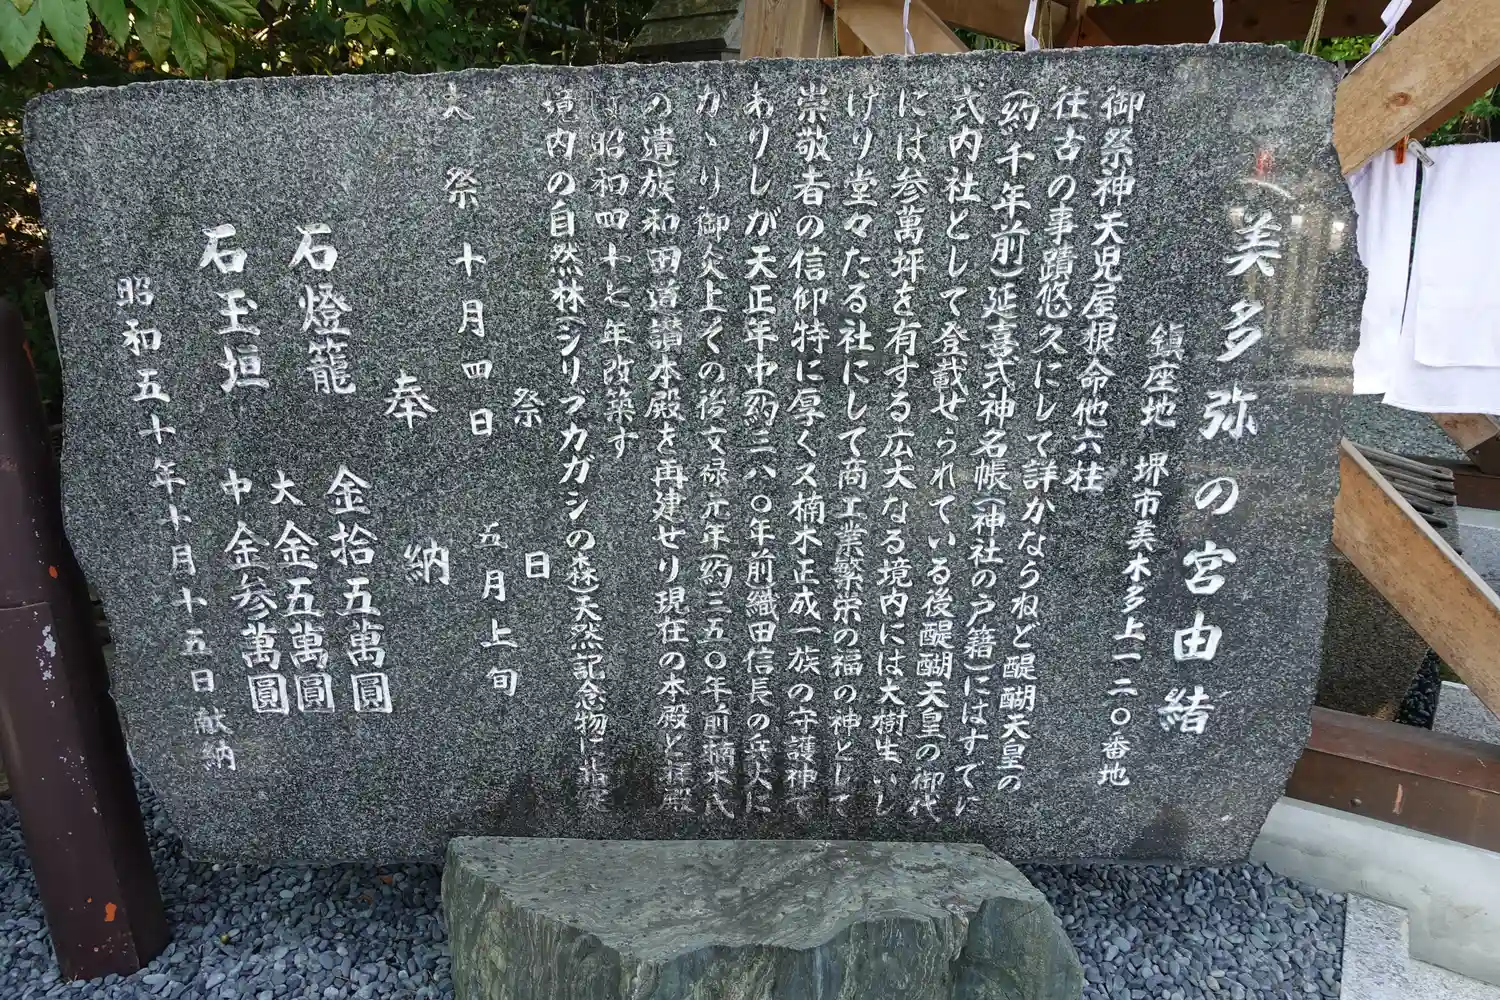 美多弥の宮由緒
鎮座地 堺市美木多上一二〇番地
御祭神天児屋根命他六柱
往古の事蹟悠久にして詳かならねど醍醐天皇の
(約千年前)延喜式神名帳(神社の戸籍)にはすでに
式内社として登載せられている後醍醐天皇の御代
には参萬坪を有する広大なる境内には大樹生いし
けり堂々たる社にして商工業繁栄の福の神として
崇敬者の信仰特に厚く又楠木正成一族の守護神で
ありしが天正年中(約三八〇年前織田信長の兵火に
かゝり御炎上その後文禄元年(約三五〇年前楠木氏
の遺族和田道讃本殿を再建せり現在の本殿と拝殿
は昭和四十七年改築す
境内の自然林(シリブカガシの森)天然記念物に指定
祭 日
大祭 十月四日 五月上旬
奉納
石燈籠 金拾五萬圓
大 金五萬圓
石玉垣 中 金参萬圓
昭和五十年十月十五日献納